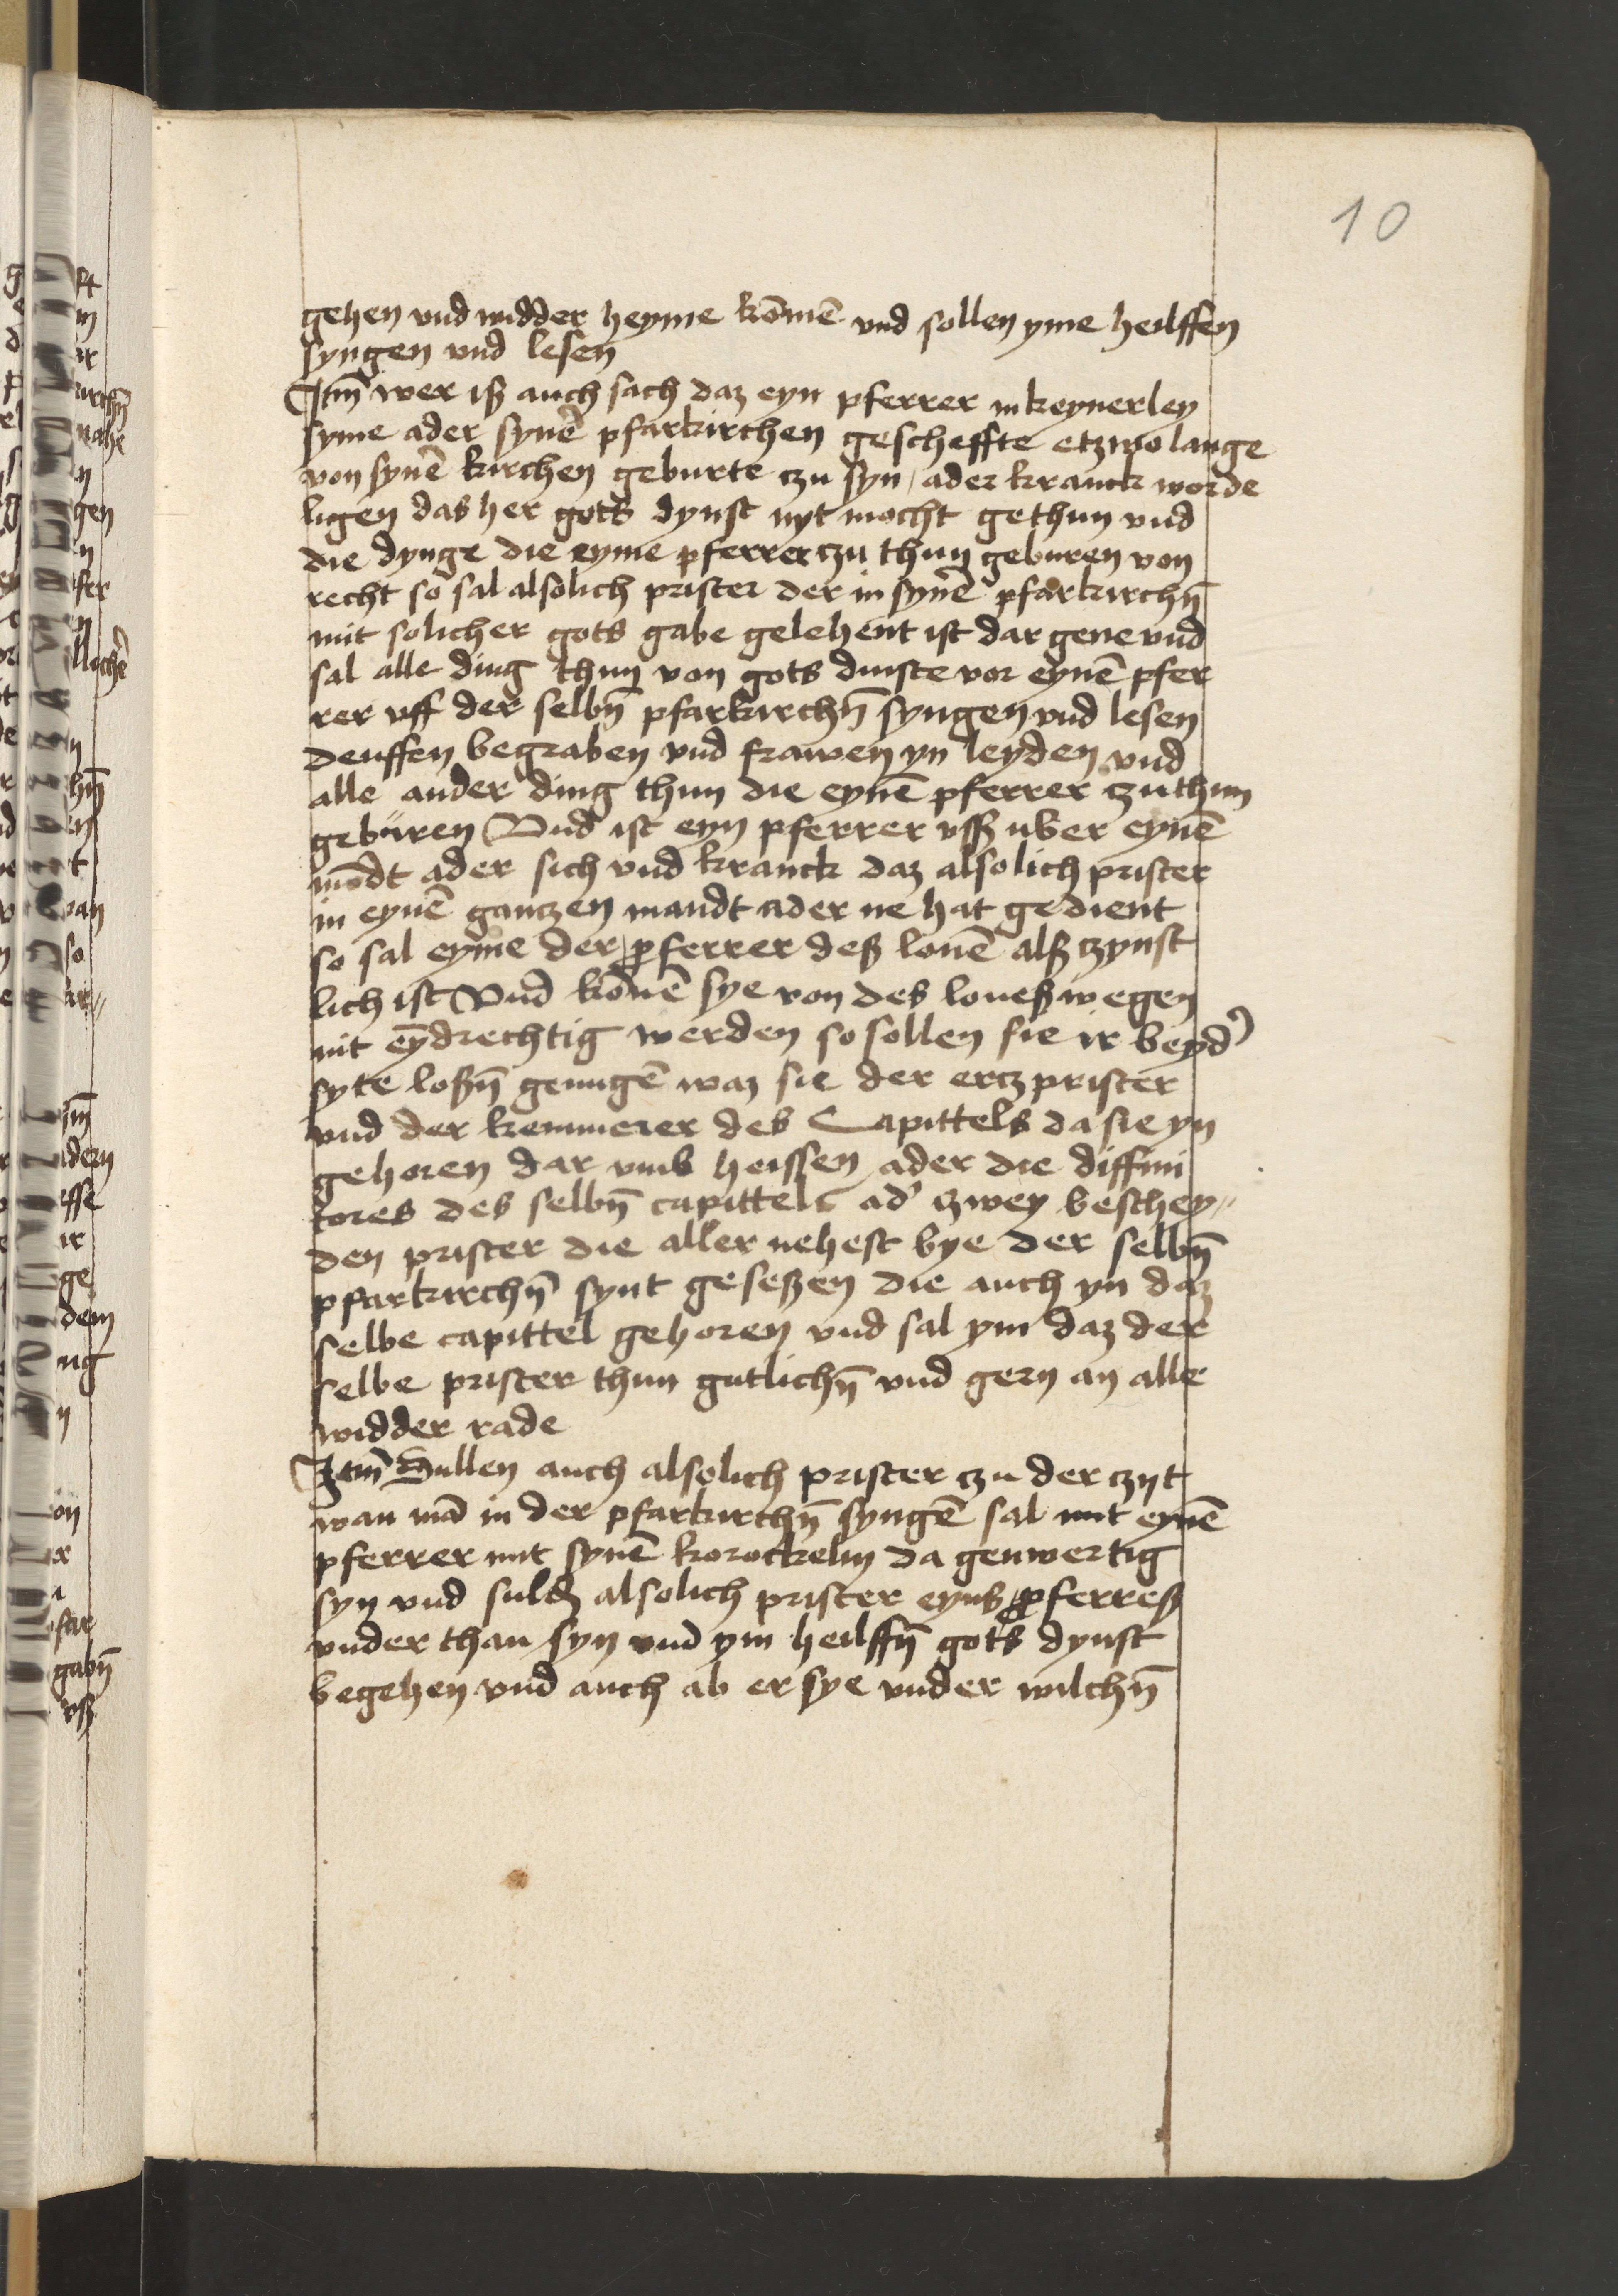 10
gehen vnd widder heyme kōmē vnd sollen yme heilffen
syngen vnd lesen
Itm̄ wer iß auch sach daz eyn pferrer in keynerley
syme ader synē pfarkirchen gescheffte etzwo lange
von synē kirchen geburte czu syn / ader kranck worde
ligen das her gots dynst nyt mocht gethun vnd
die dynge die eyme pferrer czu thun geburen von
recht so sal alsolich prister der in synē pfarkirchn̄
mit solicher gots gabe gelehent ist dar gene vnd
sal alle ding thun von gots dinste vor eynē pfer
rer vff der selbn̄ pfarkirchn̄ syngen vnd lesen
deuffen begraben vnd frawen yn leyden vnd
alle ander ding thun die eynē pferrer czu thun
geburen Vnd ist eyn pferrer vß uber eynē
mōdt ader sich vnd kranck daz alsolich prister
in eynē ganczen mandt ader me hat gedient
so sal eyme der pferrer deß lonē alß czynst
lich ist Vnd kōnē sye von des loneß wegen
nit eȳdrechtig werden so sollen sie ir beyd'
syte loßn̄ genugē waz sie der ercz prister
vnd der kemmerer des Capittels da sie yn
gehoren dar vmb heissen ader die diffini
tores des selbn̄ capittels ad' czwey beschey〃
den prister die aller nehest bye der selbn̄
pfarkirchn̄ synt geseßen die auch yn daz
selbe capittel gehoren vnd sal ym daz der
selbe prister thun gutlichn̄ vnd gern an alle
widder rade
Itm̄ Sullen auch alsolich prister czu der czyt
wan mā in der pfarkirchn̄ syngē sal mit eynē
pferrer mit synē korockelin da genwertig
syn vnd sulln̄ alsolich prister eyns pferreß
vnder than syn vnd ym heilffn̄ gots dynst
begehen vnd auch ab er sye vnder wilchn̄